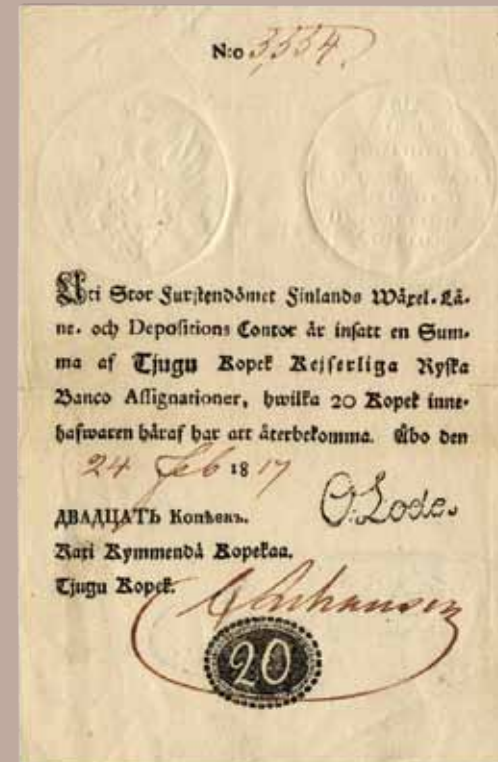 N:o 3,334.
Uti Stor Furstendömet Finlands Wäxel- Lå-
ne- och Depositions Contor är insatt en Sum-
ma af Tjugu Kopek Kejserliga Ryska
Banco Assignationer, hwilka 20 Kopek inne-
hafwaren häraf har att återbekomma. Åbo den
24 Feb 1817
O. Lode.
ДВАДЦАТЬ Копѣекъ.
Kaxi Kymmendä Kopekaa.
Tjugu Kopek.
20